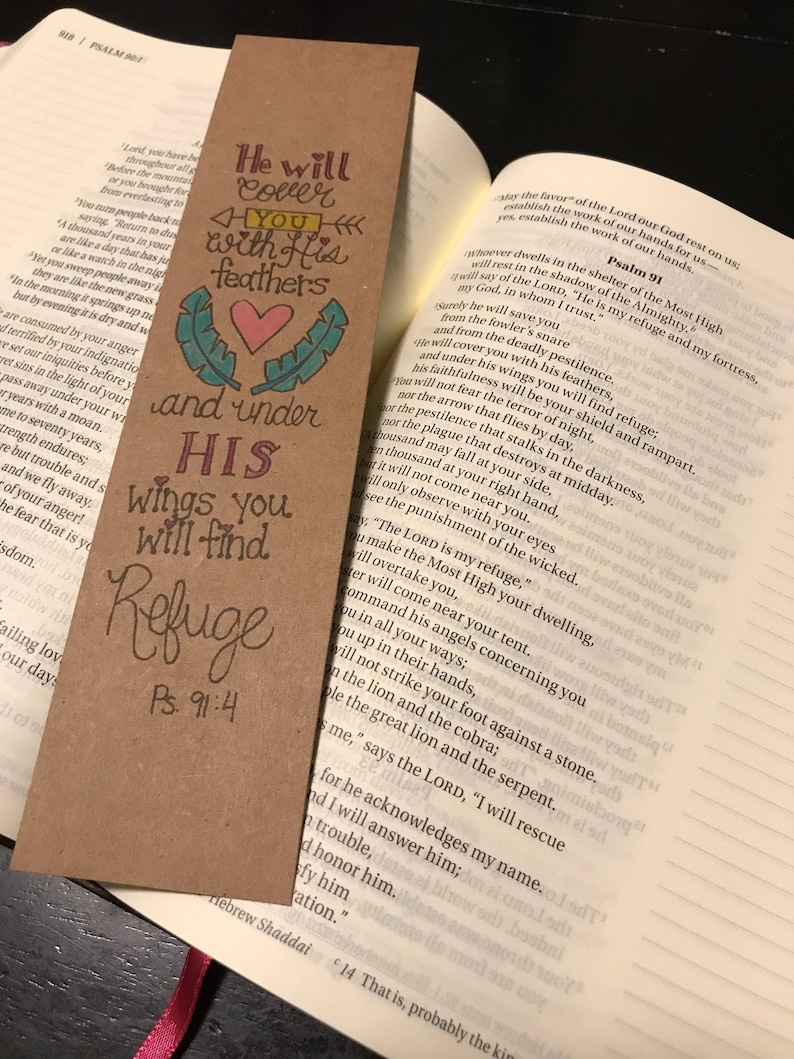 918 | PSALM 90:1
Lord, you have be
throughout all g
Before the mountai
or you brought for
from everlasting to
You turn people back to
saying, "Return to dus
A thousand years in your
are like a day that has ju
or like a watch in the nigh
Yet you sweep people away i
they are like the new grass
In the morning it springs up ne
but by evening it is dry and w
are consumed by your anger
and terrified by your indignatio
ve set our iniquities before y
ret sins in the light of your
pass away under your wr
r years with a moan.
me to seventy years,
strength endures;
re but trouble and s
and we fly away.
r of your anger!
he fear that is yo
isdom.
failing lov
our days
He will
cover
YOU
with His
feathers
and under
HIS
wings you
will find
Refuge
Ps. 91:4
17 May the favor a of the Lord our God rest on us;
establish the work of our hands for us—
yes, establish the work of our hands.
Psalm 91
1 Whoever dwells in the shelter of the Most High
will rest in the shadow of the Almighty. b
2 I will say of the LORD, "He is my refuge and my fortress,
my God, in whom I trust."
3 Surely he will save you
from the fowler's snare
and from the deadly pestilence.
4 He will cover you with his feathers,
and under his wings you will find refuge;
his faithfulness will be your shield and rampart.
5 You will not fear the terror of night,
nor the arrow that flies by day,
nor the pestilence that stalks in the darkness,
nor the plague that destroys at midday.
thousand may fall at your side,
ten thousand at your right hand,
but it will not come near you.
will only observe with your eyes
nd see the punishment of the wicked.
say, "The LORD is my refuge,"
ou make the Most High your dwelling,
will overtake you,
ster will come near your tent.
command his angels concerning you
ou in all your ways;
you up in their hands,
will not strike your foot against a stone.
n the lion and the cobra;
ple the great lion and the serpent.
s me," says the LORD, "I will rescue
for he acknowledges my name.
nd I will answer him;
n trouble,
d honor him.
sfy him
vation."
Hebrew Shaddai
c 14 That is, probably the kin